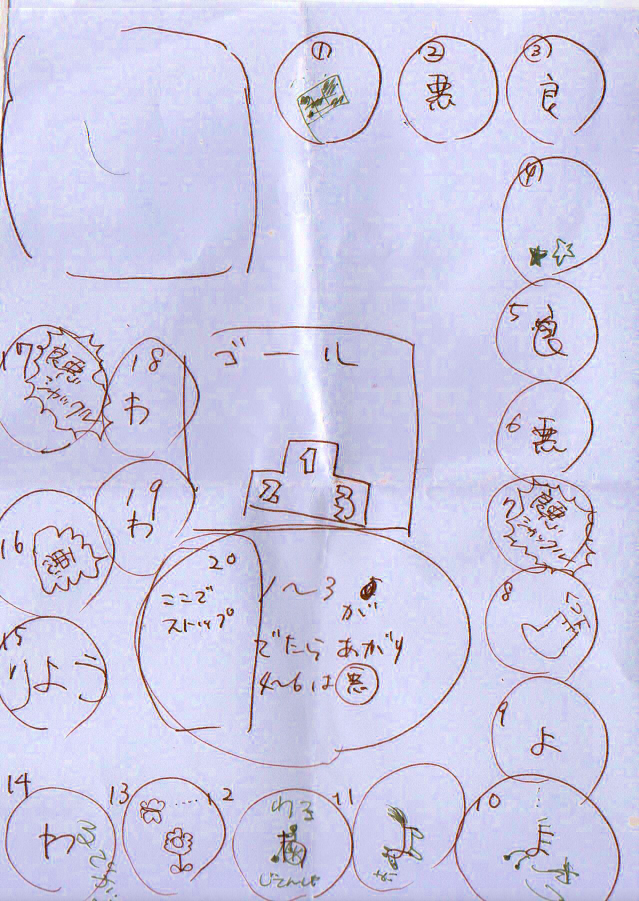 ①
②
悪
③
良
④
5
良
6
悪
7
良悪
シャッフル
8
9
よ
10
よ
11
よ
12
わる
梅
じてんしゃ
13
14
わ
15
りよう
16
悪
17
良悪
シャッフル
18
わ
19
わ
ゴール
1
2
3
20
ここで
ストップ
1〜3
が
でたら あがり
4〜6は悪